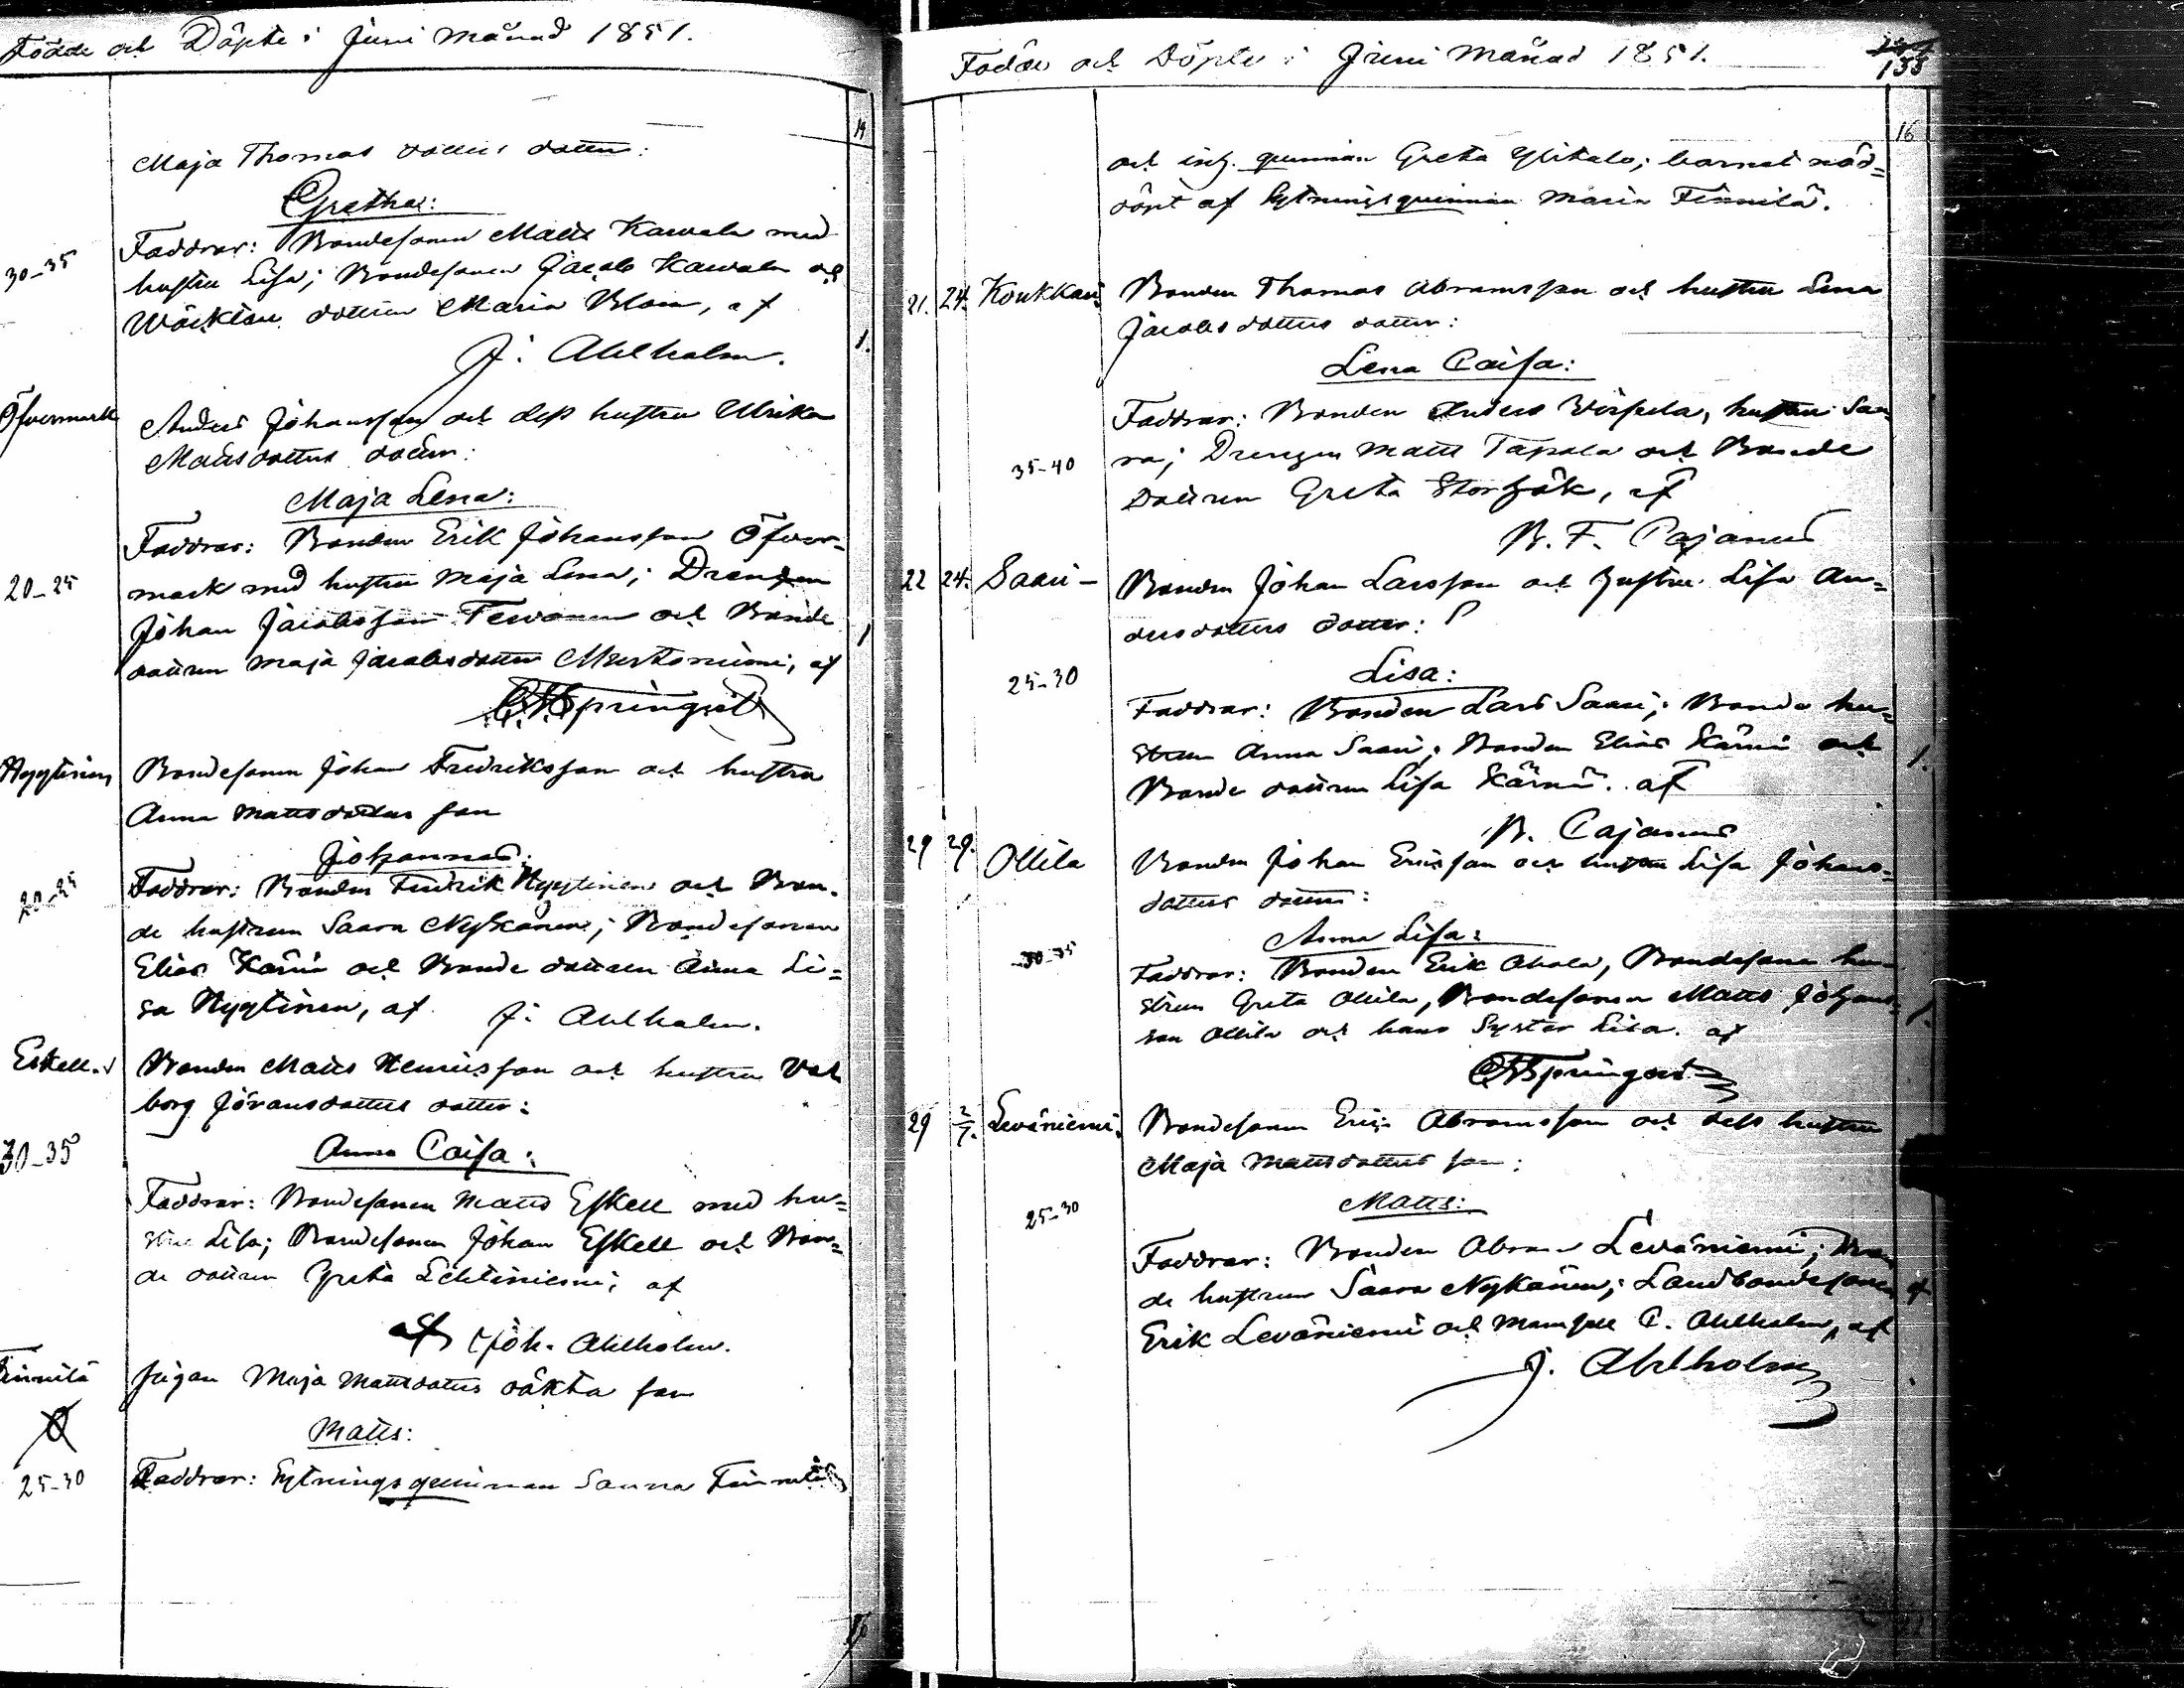 Födde och Döpte i Juni Månad 1851.
14
Maja Thomas dotters dotter:
Gretha:
30-35
Faddrar: Bondesonen Matts Kawala med
hustru Lisa; Bondesonen Jacob Kawala och
dottren Maria Blom, af
J. Ahlholm.
1.
Öfvermark
Anders Johansson och dess hustru Ulrika
Mattsdotters dotter:
Maja Lena:
Faddrar: Bonden Erik Johansson Öfver=
20-25
mark med hustru Maja Lena; Drengen
Johan Jacobsson och Bonde
1
dottren Maja Jacobsdotter af
Springert
Hyytinen
Bondesonen Johan Fredriksson och hustru
Anna Mattsdotters son
Johannes:
20-25
Faddrar: Bonden Fredrik Hyytinen och Bon-
de hustrun Saara Nykänen; Bondesonen
Elias Kärnä och Bonde dottren Anna Li=
sa Hyytinen, af J. Ahlholm.
Eskell
Bonden Matts Henricsson och hustru Val
borg Jöransdotters dotter:
Anna Caisa:
30-35
Faddrar: Bondesonen Matts Eskell med hu=
stru Lisa; Bondesonen Johan Eskell och Bon=
de dottren Greta Lehtiniemi; af
af Joh. Ahlholm.
Finnilä
Pigan Maja Mattsdotters oäkta son
Matts:
25-30
Faddrar: Sytningsquinnan Sanna Finnilä
Födde och Döpte i Juni Månad 1851.
155
16
och inh. quinnan Greta Ylitalo; barnet nöd=
döpt af Sytningsquinnan Maria Finnilä.
21. 24. Koukkari
Bonden Thomas Abramsson och hustru Lena
Jacobsdotters dotter:
Lena Caisa:
Faddrar: Bonden Anders Wirpela, hustru Saa
35-40
ra; Drengen Matts Tapola och Bonde
dottren Greta Storbjök, af
B. F. Cajanus
22 24. Saari
Bonden Johan Larsson och hustru Lisa An=
dersdotters dotter:
25-30
Lisa:
Faddrar: Bonden Lars Saari; Bonde hu=
strun Anna Saari; Bonden Elias Kärnä och
1.
Bonde dottren Lisa Kärnä. af
B. Cajanus
29 29. Ollila
Bonden Johan Ericsson och hustru Lisa Johans=
dotters dotter:
Anna Lisa:
30-35
Faddrar: Bonden Erik Ahola, Bondesone hu-
strun Greta Ollila, Bondesonen Matts Johans=
1.
son Ollila och hans Syster Lisa. af
Springert
29 2/7. Leväniemi
Bondesonen Eric Abramsson och dess hustru
Maja Mattsdotters son:
Matts:
25-30
Faddrar: Bonden Abram Leväniemi; Bon
de hustrun Saara Nykänen; Landbondesonen
Erik Leväniemi och Mamsell C. Ahlholm, af
J. Ahlholm